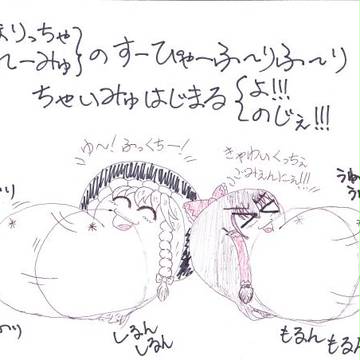 まりっちゃ
れーみゅ}の すーぴゅーふ〜りふ〜り
ちゃいみゅはじまる{よ!!!
のじぇ!!!
ゆ〜!ふっくちー!
きゃわいくっちぇ
ごみぇんにぇ!!!
しるん
しるん
もるん
もるん